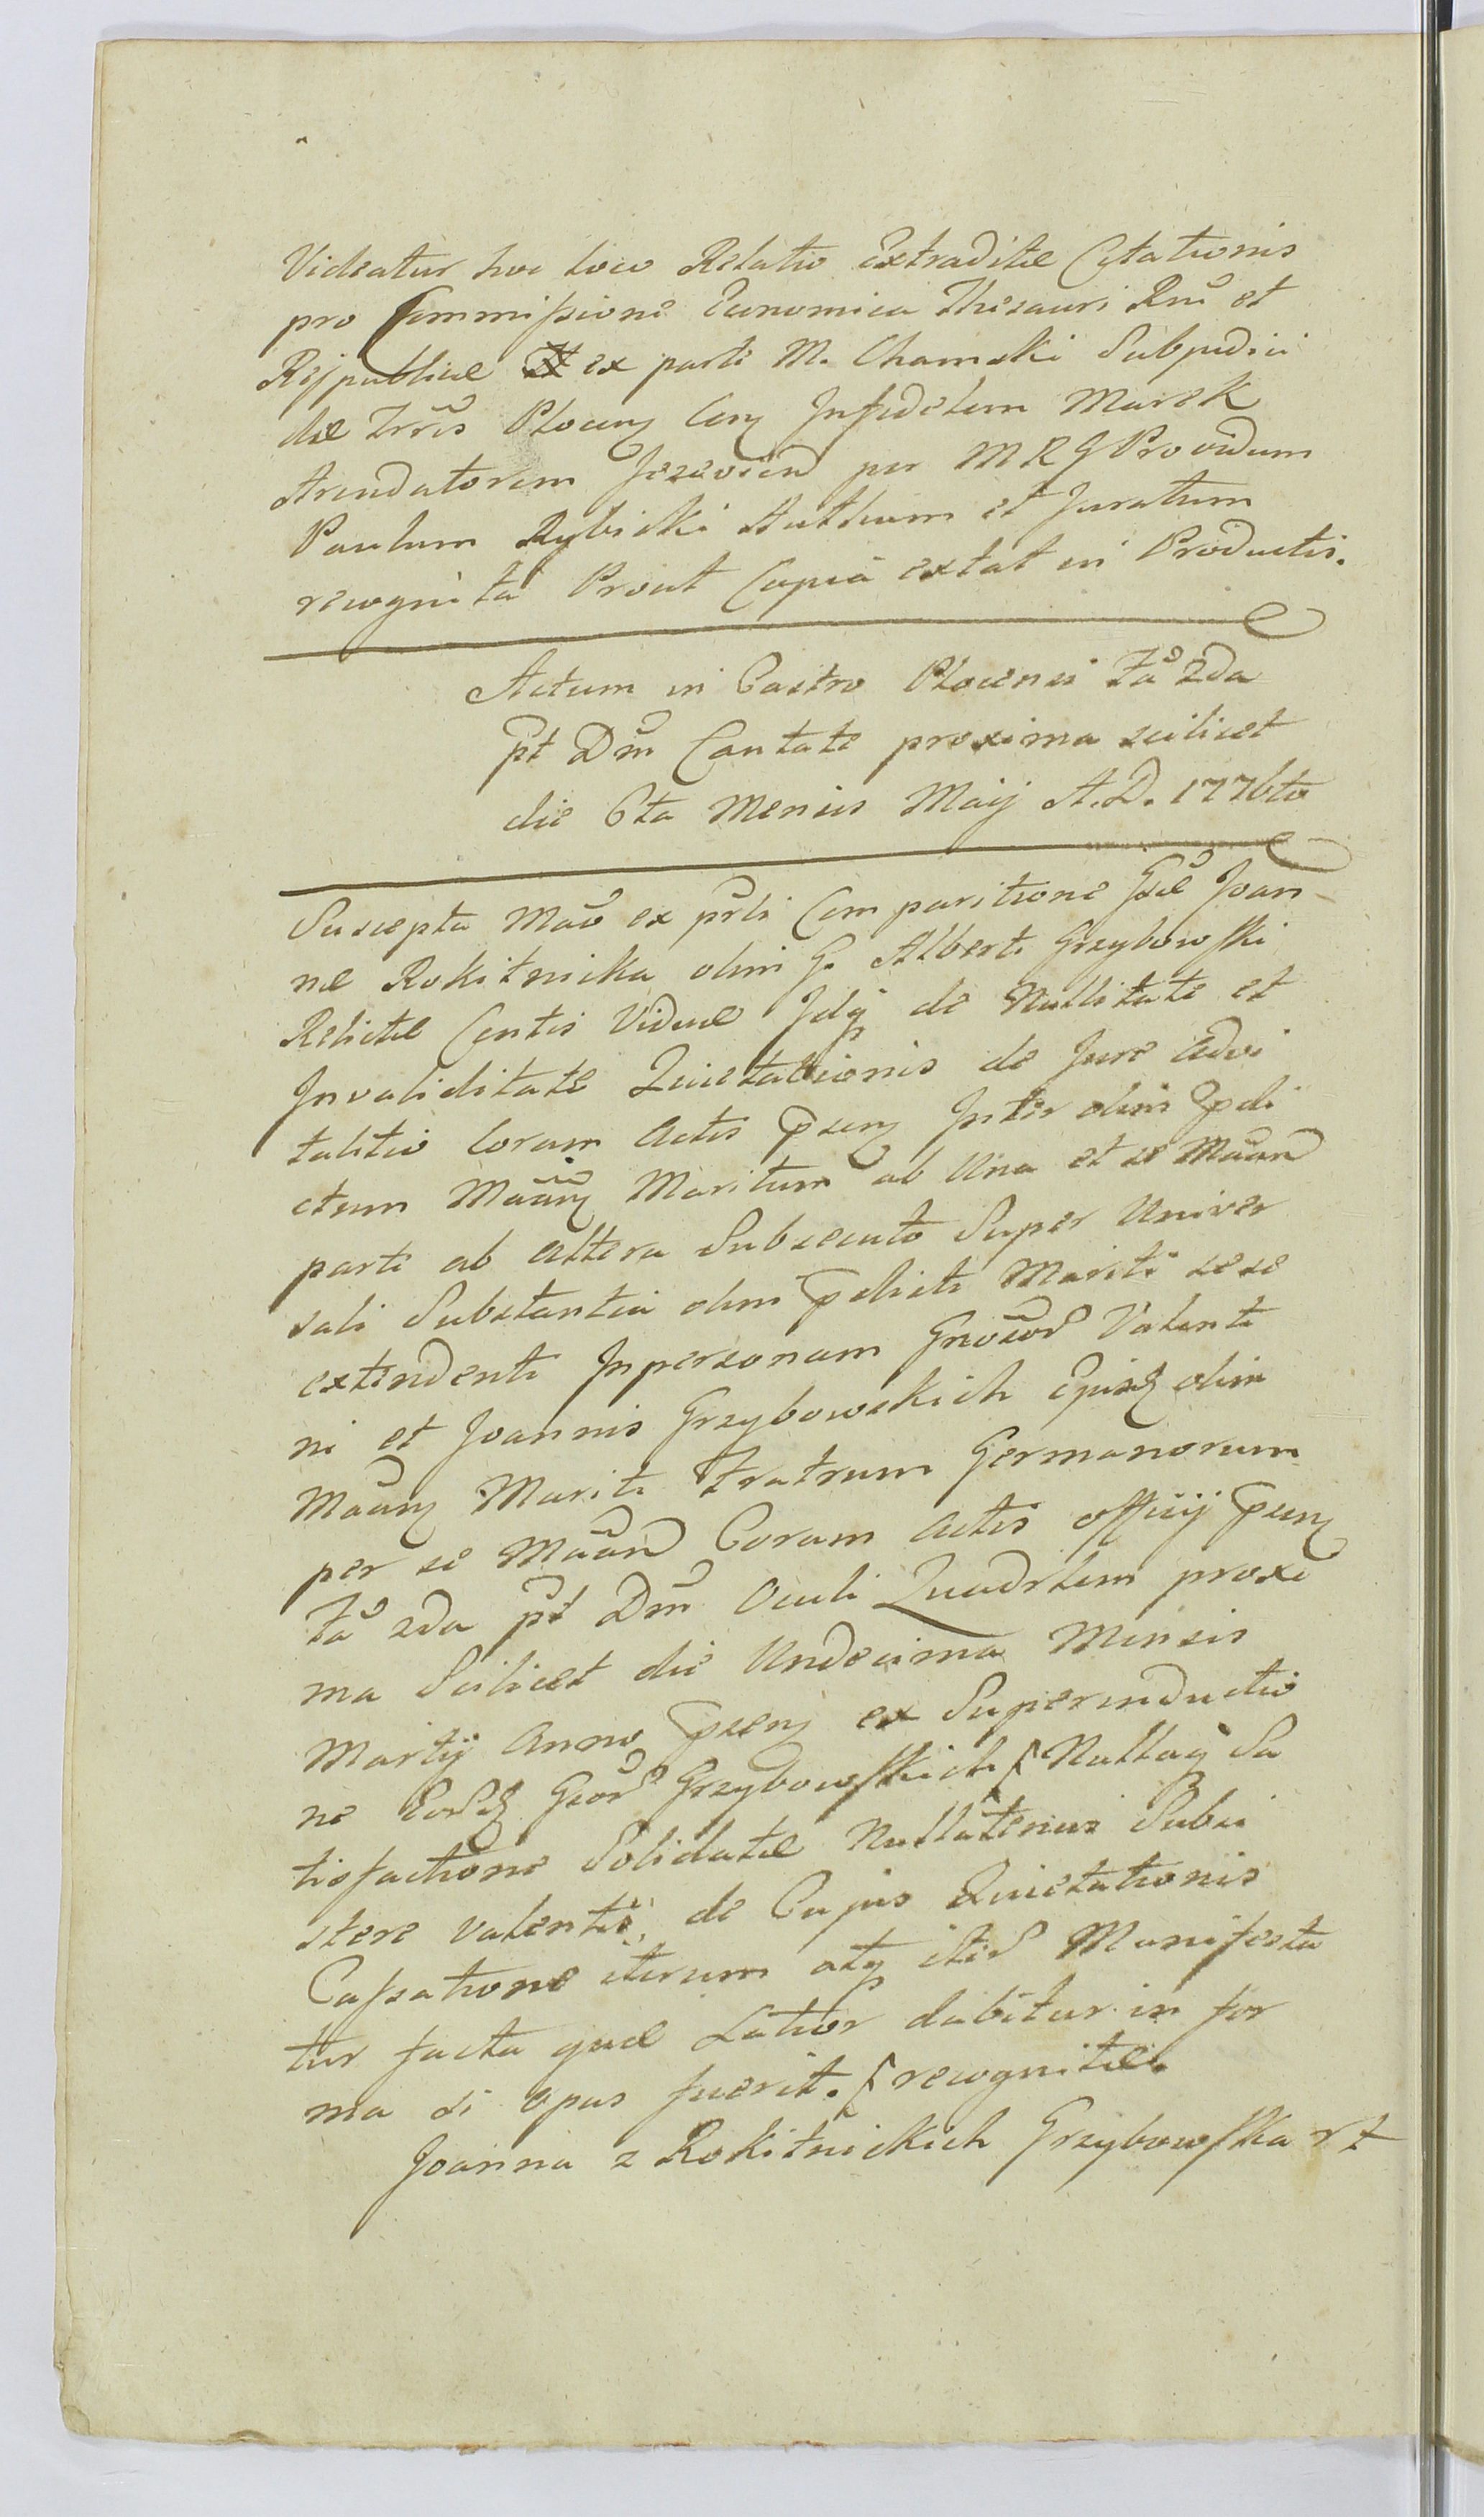 Videatur hoc loco Relatio Extraditæ Cytationis
pro Commissione Œconomica Thesauri Rni et
Rejpublicæ ex parte M. Chamski Subjudici
dæ Trris Plocens Cens Infidelem Marek
Arendatorem Jezevien per M R G Providum
Paulum Rybicki Authum et Juratum
recognita Prout Copia extat in Productis.
Actum in Castro Plocensi fa 2da
pt Dm Cantate proxima scilicet
die 6ta Mensis Maij A.D. 1776to
Suscepta Mao ex prli Comparitione Gsæ Joan-
næ Rokitnicka olim G. Alberti Grzybowski
Relictæ Contis Viduæ Idq de Nullitate et
Invaliditate Quietationis de Jure advi
talitio Coram Actis psen Inter olim pdi
ctum Maan Maritum ab Una et se Maan
parte ab altera Subsecuto Super Univer
sali Substantia olim pdicti Mariti sese
extendenti Inpersonam Gnosor Valenti
ni et Joannis Grzybowskich olim
Maan Mariti Fratrum Germanorum
per se Maan Coram Actis officij psen
fa 2da pt Dm Oculi Quadrlem proxi
ma Scilicet die Undecima Mensis
Martij Anno psen ex Superinductio
ne Eord Gsor Grzybowskich [ Nullaq Sa
tisfactione Solidatæ Nullatenus Subsi
stere valentis, de Cujus Quietationis
Cassatione iterum atq iter Manifesta
tur facta quæ Latior dabitur in for
ma si opus fuerit. [ recognitæ.
Joanna z Rokitnickich Grzybowska